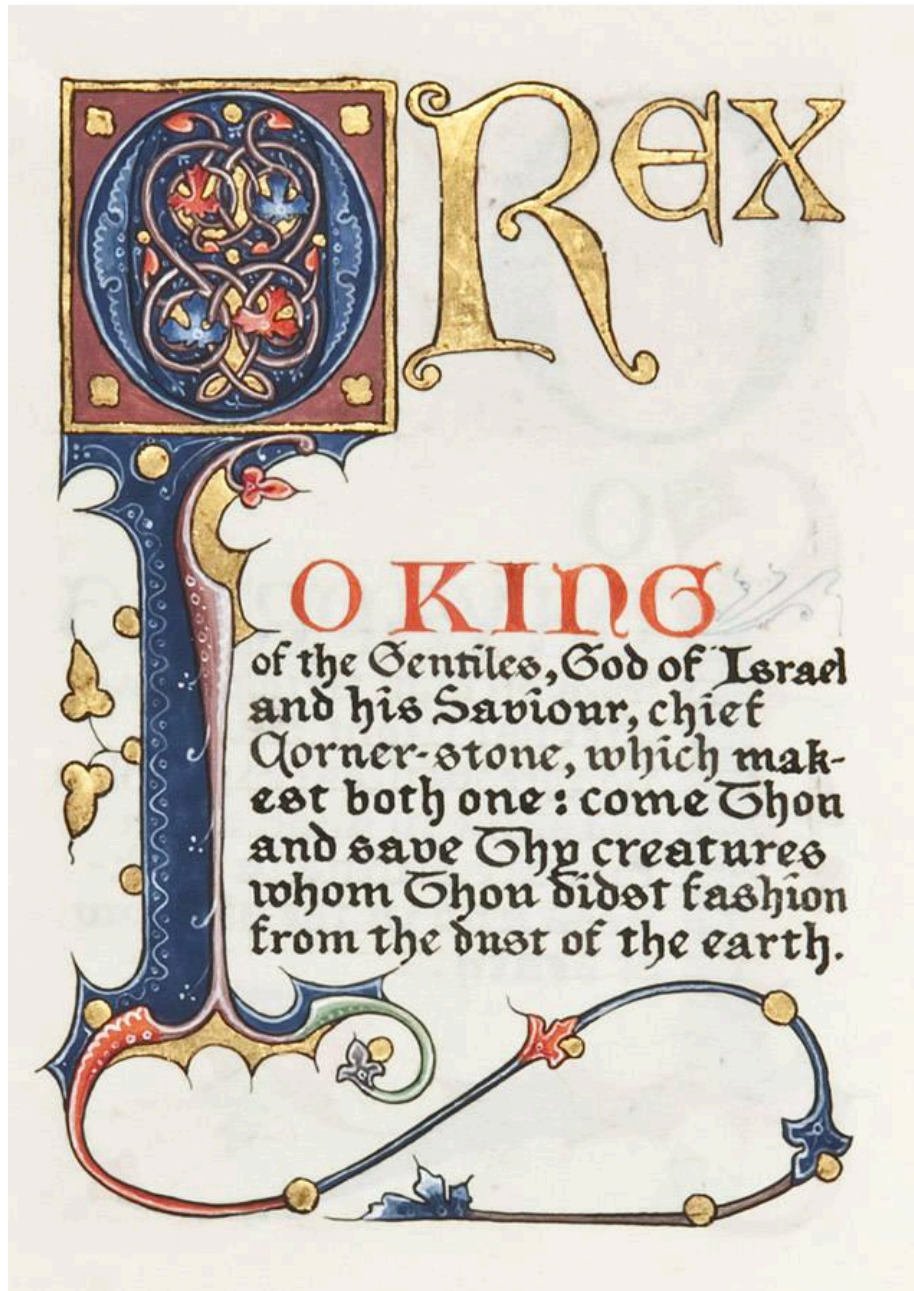 O REX
O KING
of the Gentiles, God of Israel
and his Saviour, chief
Corner-stone, which mak-
est both one: come Thou
and save Thy creatures
whom Thou didst fashion
from the dust of the earth.